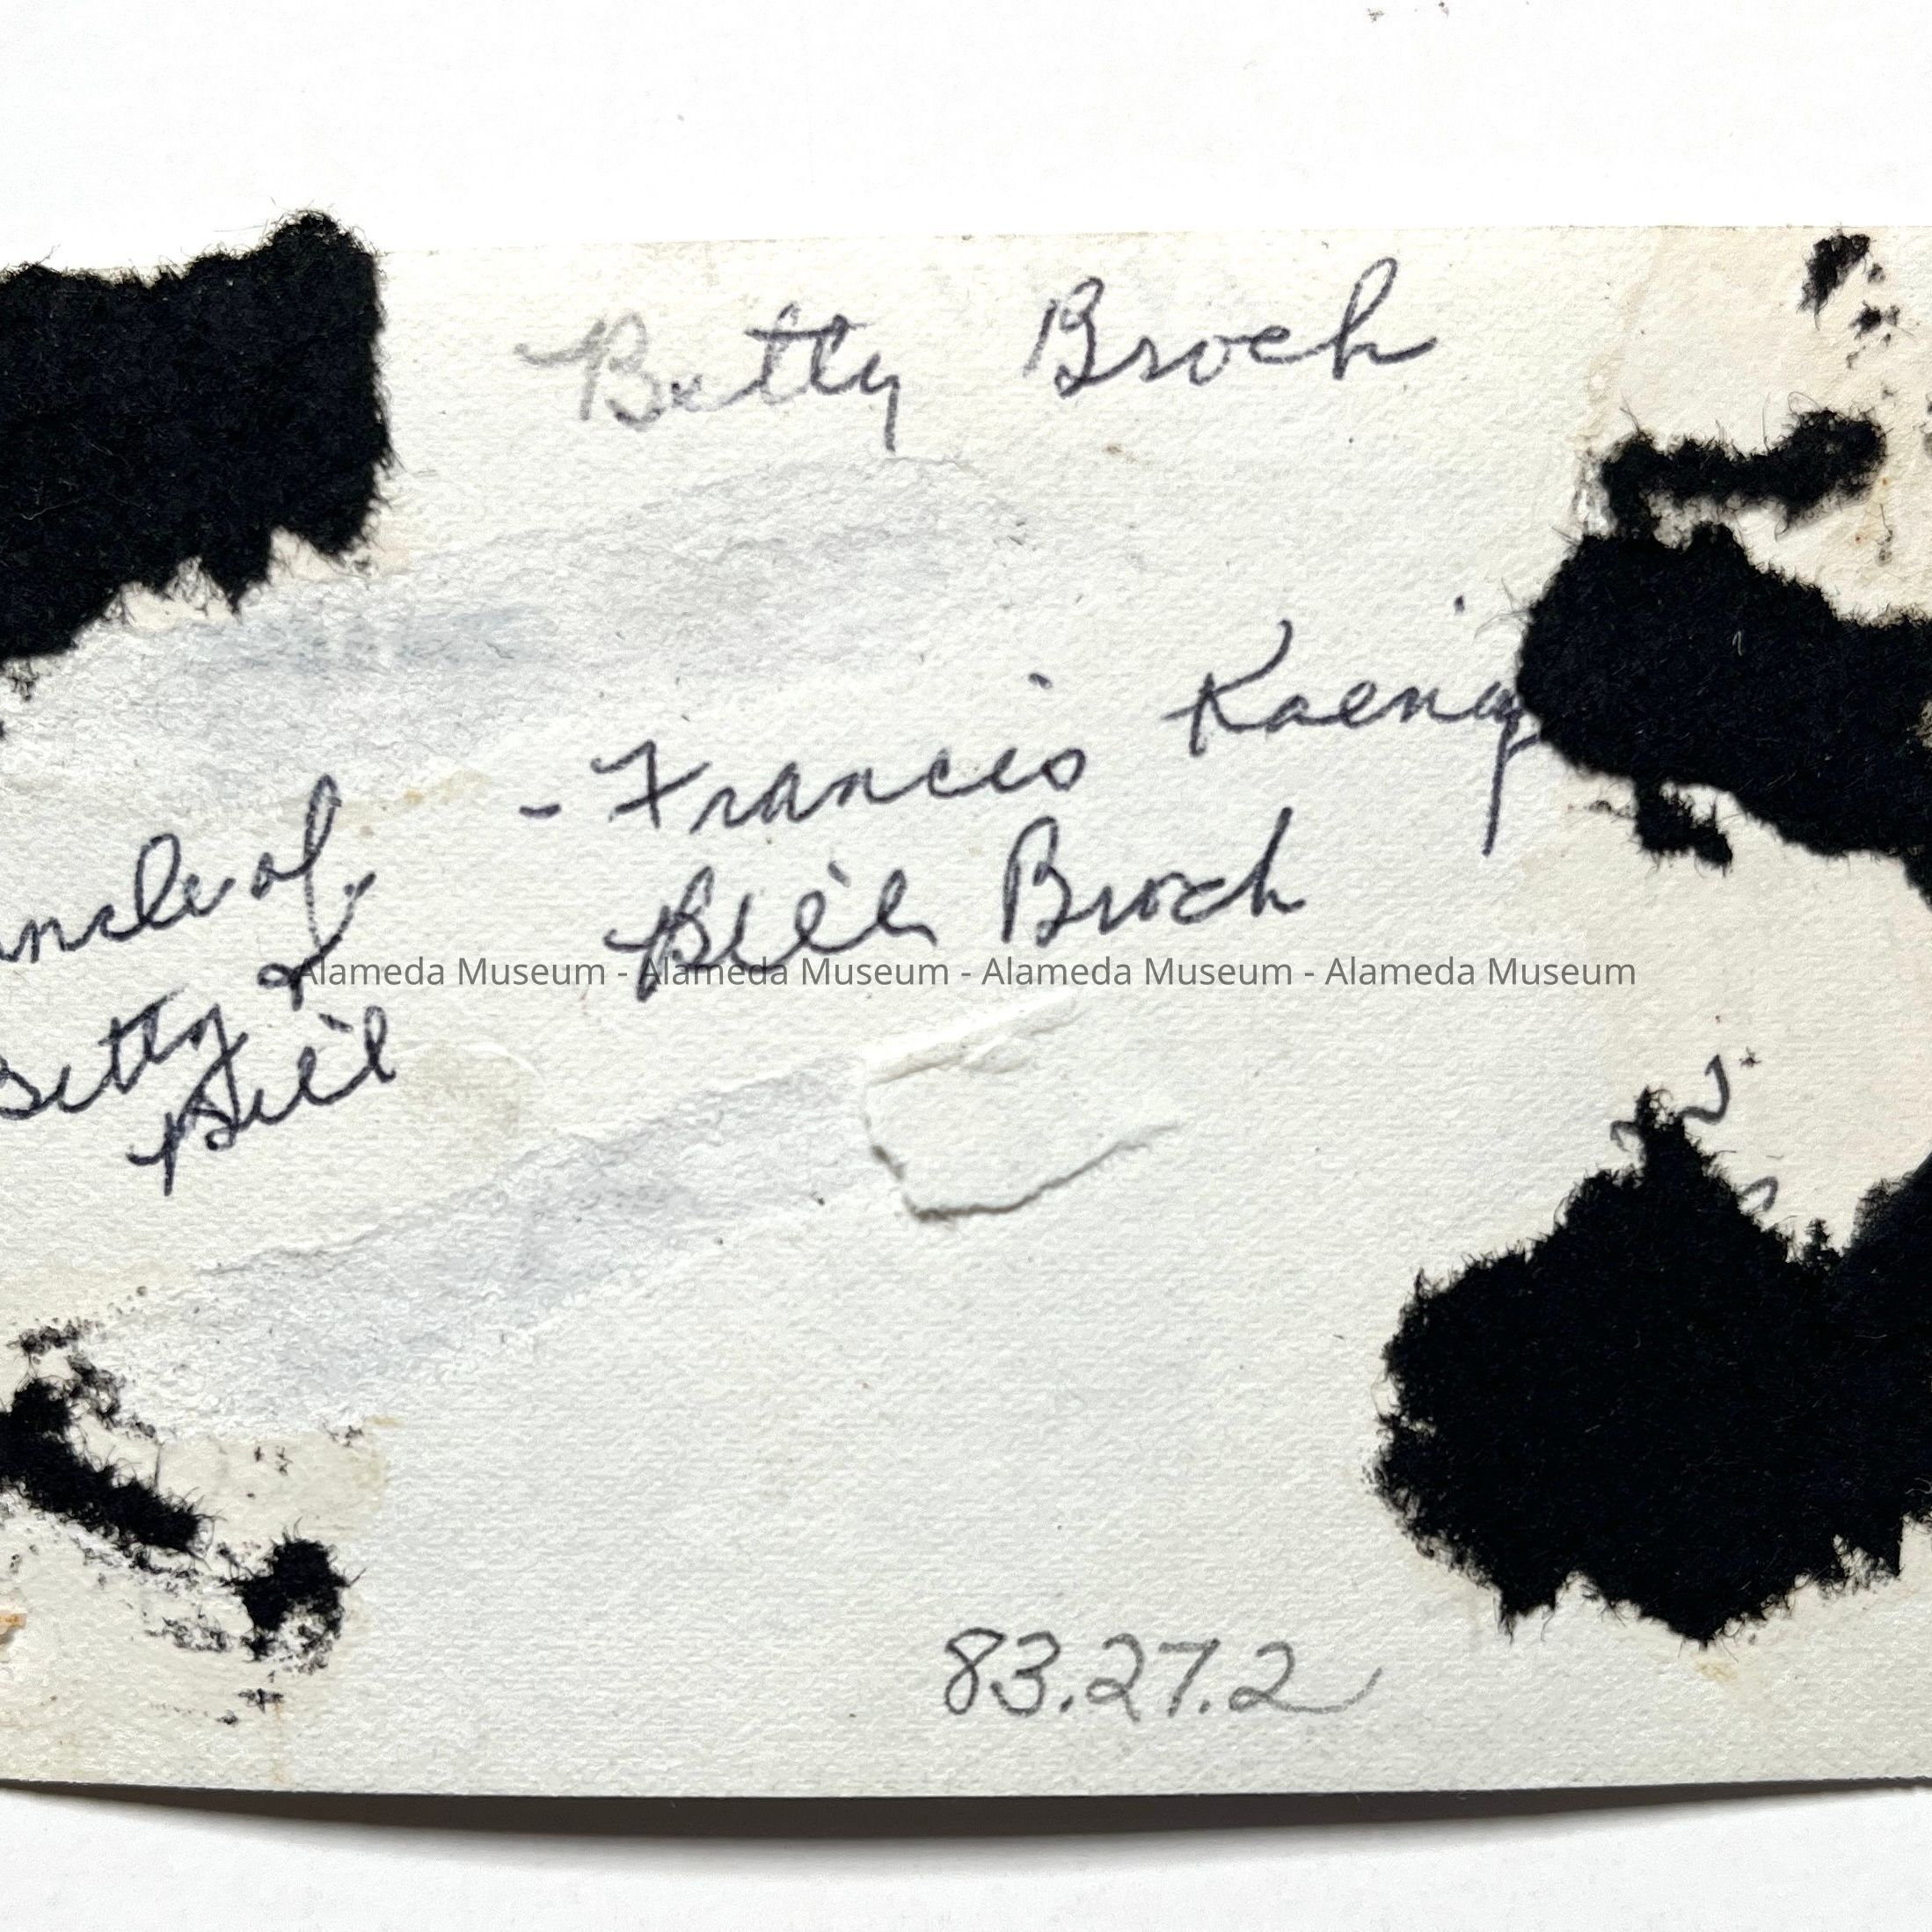 Betty Broch
- Francis Kaenig
uncle of
Bill Broch
Betty &
Bill
Alameda Museum - Alameda Museum - Alameda Museum - Alameda Museum
83.27.2